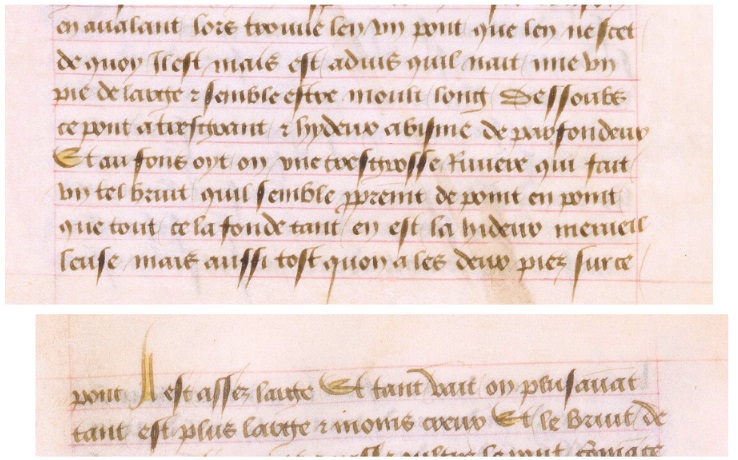 en aualant lors trouue len vn pont que len ne scet
de quoy Il est mais est aduis quil nait mie vn
pie de large & semble estre moult long Dessoubz
ce pont a tresgrant & hydeux abisme de parfondeur
Et au fons oyt on vne tresgrosse Riuiere qui fait
vn tel bruit quil semble de point en point
que tout cela fonde tant en est la hideur merueil
leuse mais aussi tost quon a les deux piez sur ce
pont Il est assez large Et tant vait on plus auant
tant est plus large & moins creux Et le bruit de